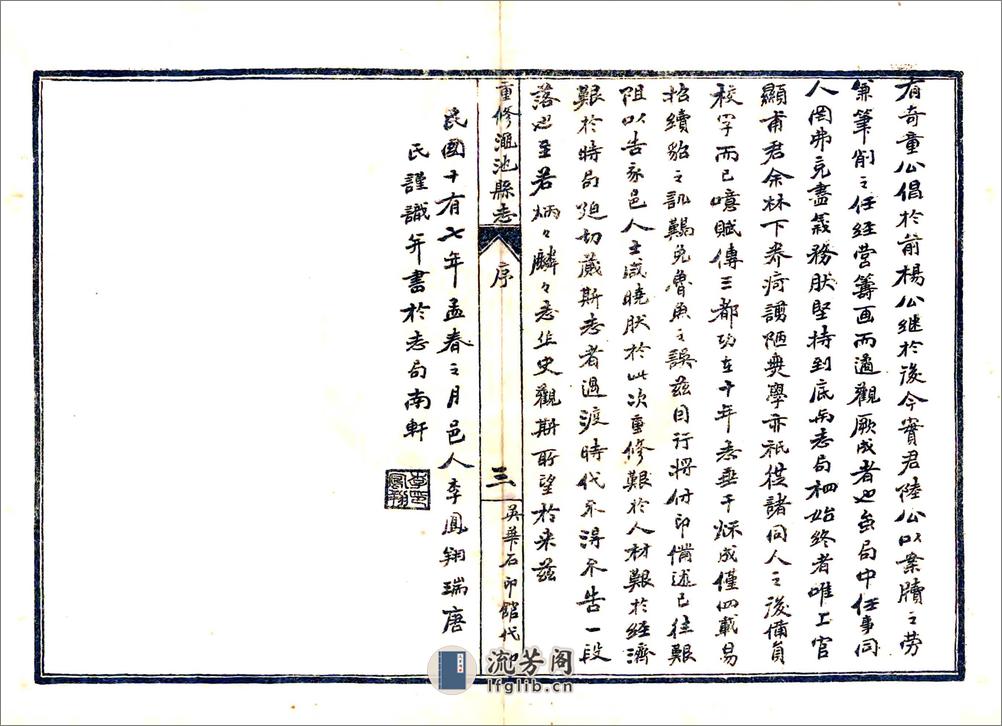 有奇童公倡於前楊公継於後今賓君陸公以案牘之勞
兼筆削之任経營籌画而適觀厥成者也至局中任事同
人罔弗克盡義務肰堅持到底与志局相始終者唯上官
顯甫君余林下养疴謭陋無學亦祇從諸同人之後備員
校字而已噫賦傳三都功在十年志垂千秌成僅四載易
招續貂之訊難免魯魚之誤兹目行將付印備述已往艱
阻以告我邑人士咸曉肰於此次重修艱於人材艱於経濟
艱於時局廹切蕆斯志者過渡時代不得不告一段
落也至若炳々麟々志乗史觀斯所望於来兹
重修澠池縣志
序
三
吳華石印館代印
民國十有七年孟春之月邑人李鳳翔瑞唐
氏謹識并書於志局南軒
流芳阁
lfglib.cn